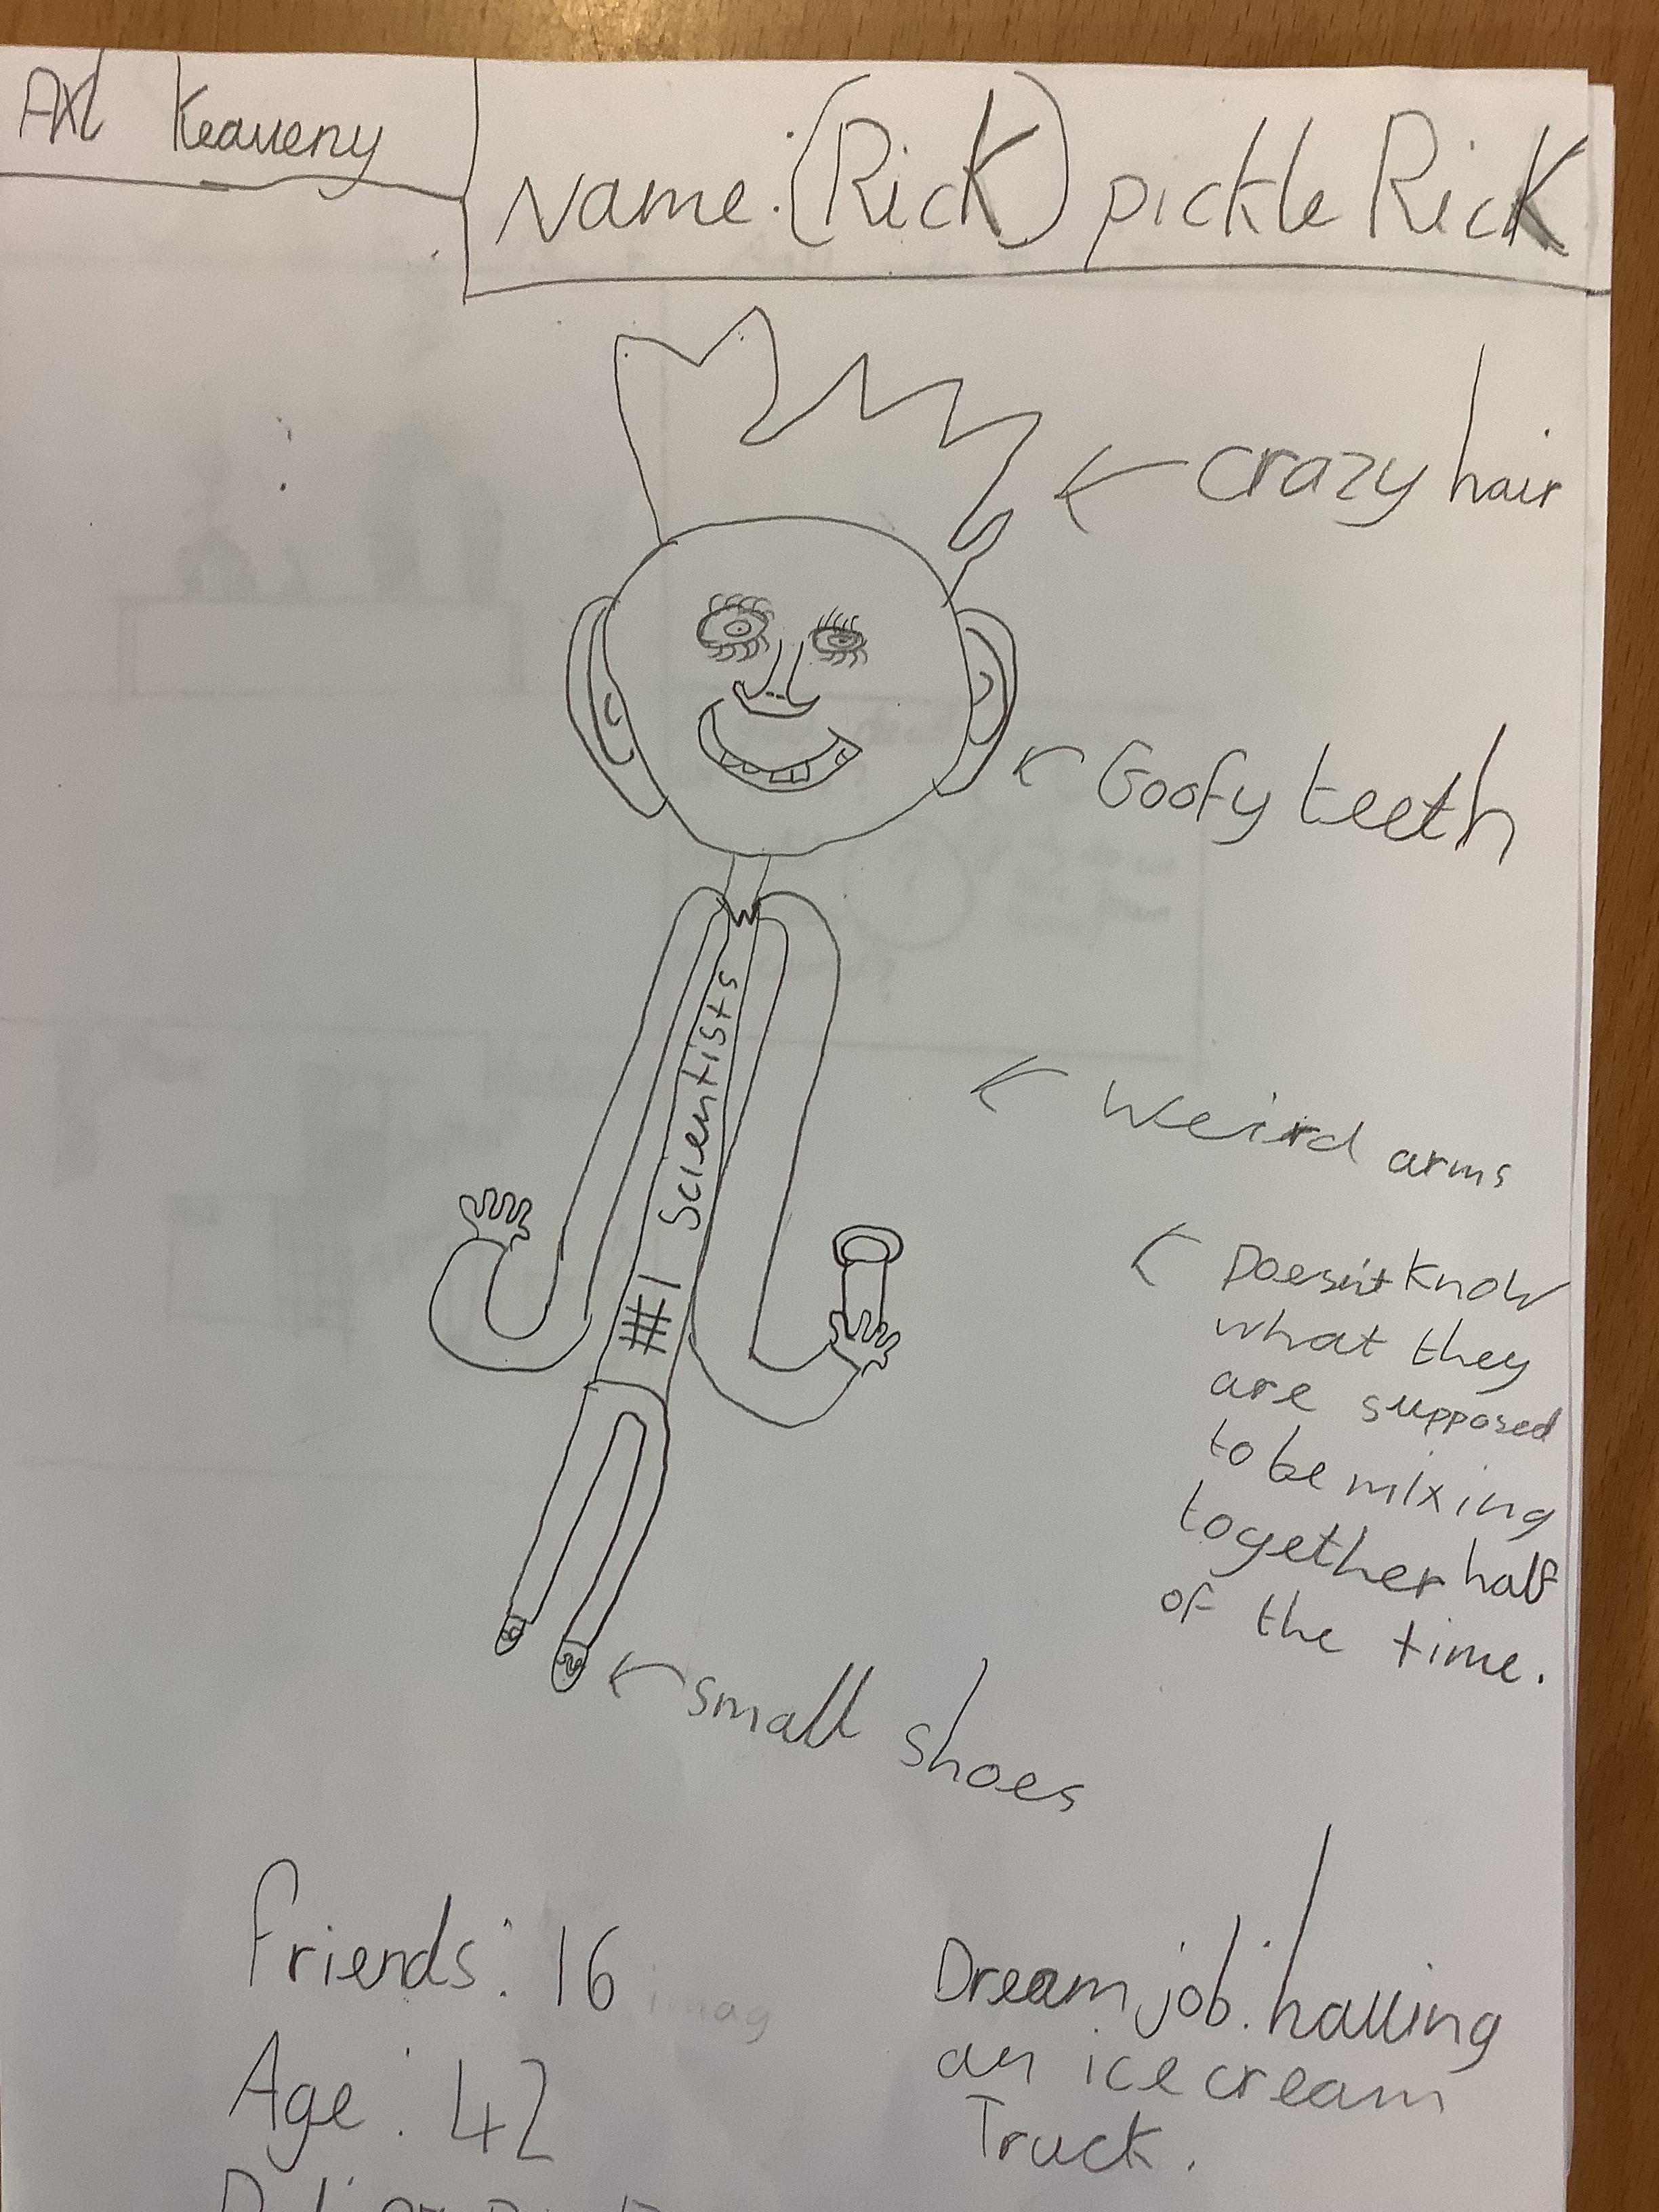 Axl Keaveny
Name: (Rick) pickle Rick
crazy hair
Goofy teeth
#1 Scientists
Weird arms
Doesn't know
what they
are supposed
to be mixing
together half
of the time.
small shoes
friends: 16
imag
Age: 42
Dream job: halling
an ice cream
Truck.